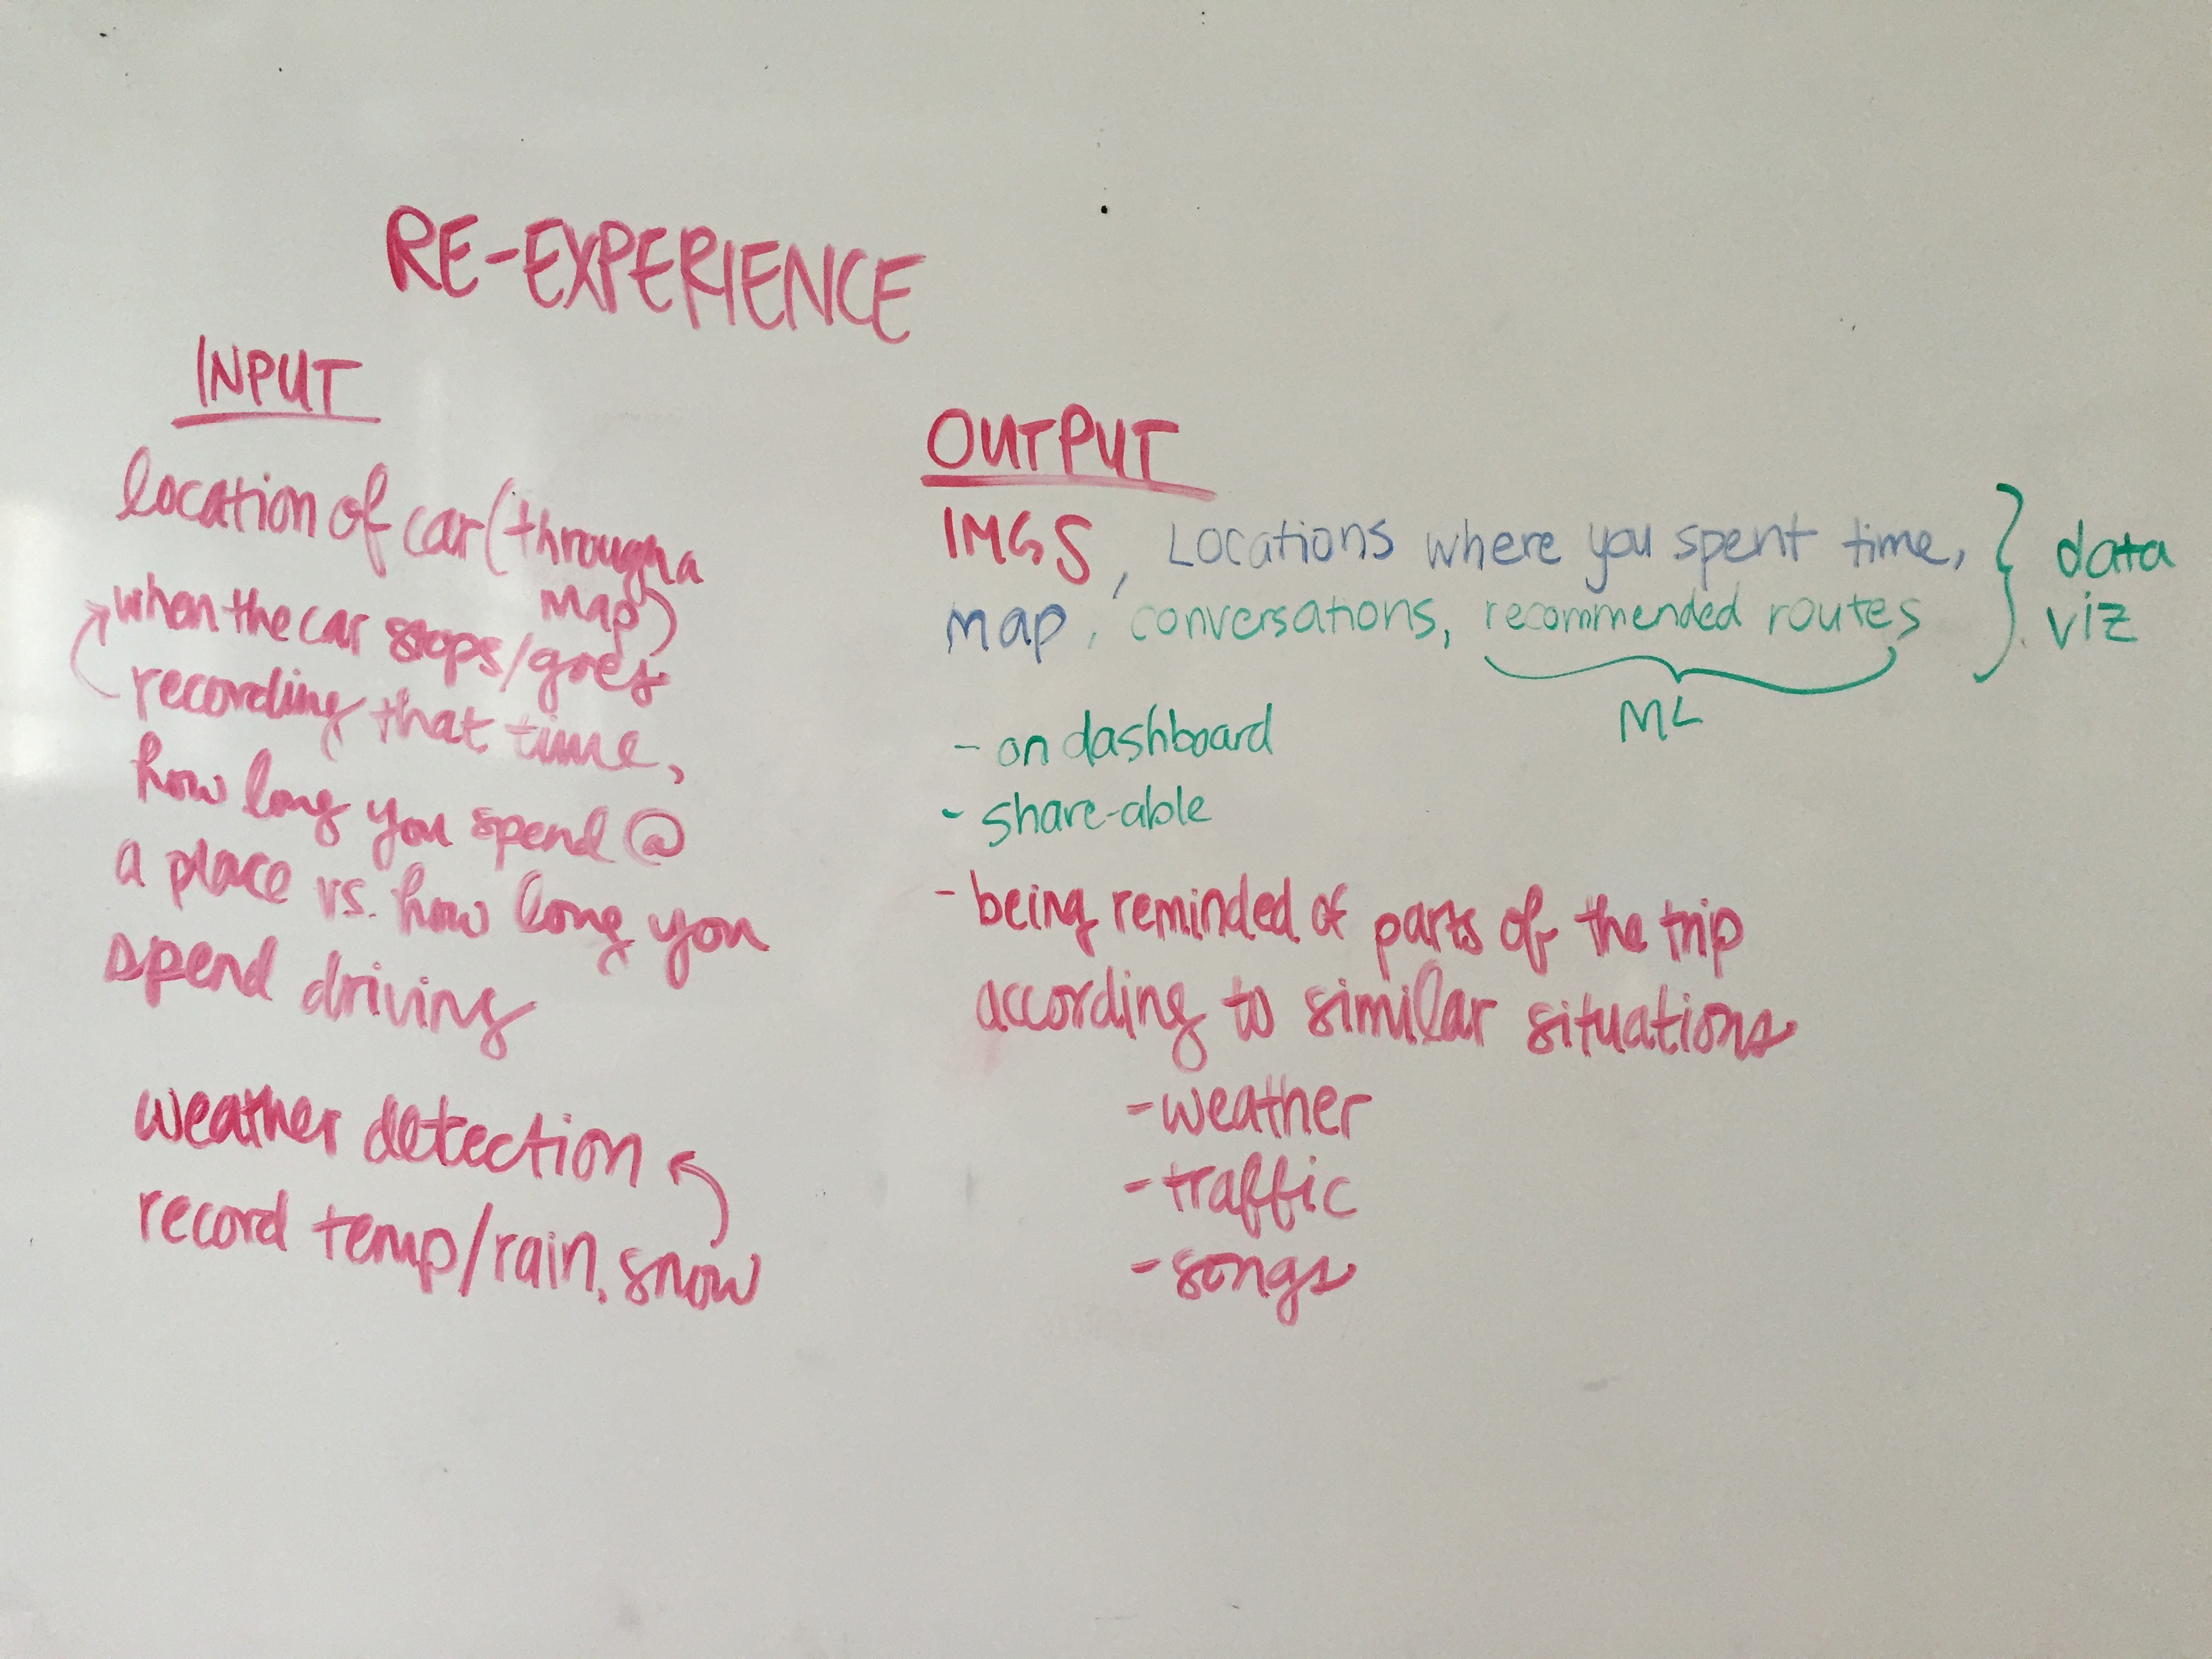 RE-EXPERIENCE
INPUT
location of car (through a
map)
when the car stops/goes
recording that time,
how long you spend @
a place vs. how long you
spend driving
weather detection
record temp/rain, snow
OUTPUT
IMGS, Locations where you spent time,
map, conversations, recommended routes
data
viz
ML
- on dashboard
- share-able
- being reminded of parts of the trip
according to similar situations
- weather
- traffic
- songs